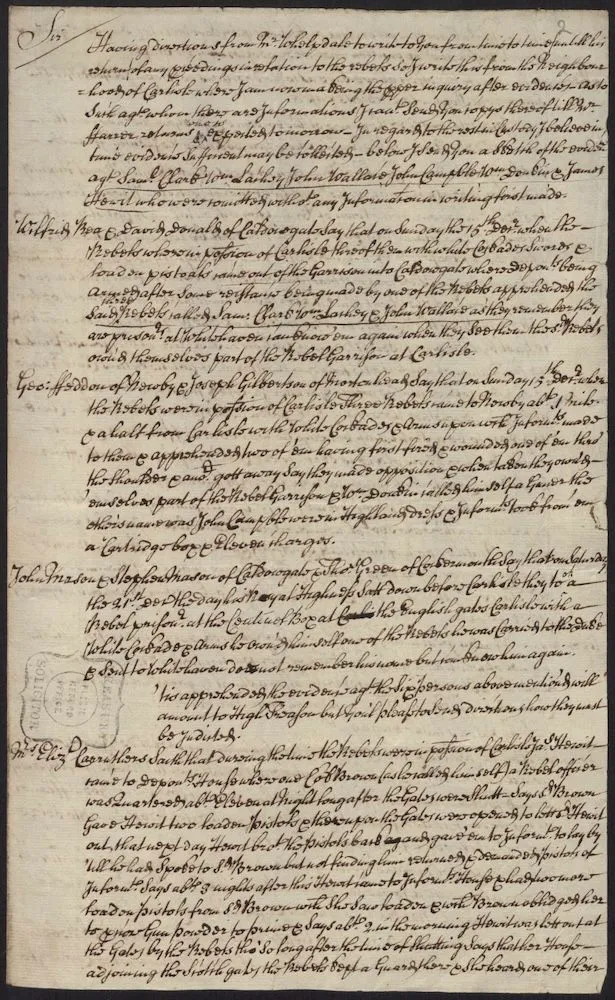 Sir
Having directions from Mr. Whelpdale to write to you from time to time untill his
return of any p'ceedings in relation to the rebels so I write this from the Neighbour
=hood of Carlisle where I am now makeing the p'per inquiry after evidence as to
Such agt. whom there are Informations I cant Send you Copys thereof till Mr
Farrer returns who is expected to morrow - In regard to the rest in Custody I believe in
time evidence Sufficient may be Collected - below I Send you a Sketch of the evidce.
agt. Saml. Clark Wm. Lackey John Wallace John Campble Wm. Donkin & James
Hewit who were Comitted without any Information in writing first made.
Wilfrid Rea & David Donald of Caldewgate Say that on Sunday the 15th Decr. when the
Rebels where in possion of Carlisle three of them with white Cockades Swords &
loaden pistoals came out of the Garrison into Caldewgate where depon.ts being
armed after Some resistance being made by one of the Rebels apprehended the
Said three Rebels called Saml. Clark Wm. Lackey & John Wallace as they remember they
are prison.rs at Whitehaven can know 'em again when they See them the Sd. Rebels
own'd themselves part of the Rebel Garrison at Carlisle.
Geo: Heddon of Newby & Joseph Gilbertson of Say that on Sunday 15th Decr. when
the Rebels were in possion of Carlisle Three Rebels came to Newby abt. 4 Mile
& a half from Carlisle with White Cockades & Arms upon wch. Informts. made
to them & apprehended two of 'em having first fired & wounded one of 'em thro'
the Shoulder & and gott away Say they made opposition & when taken they own'd
'emselves part of the Rebel Garrison & Wm. Donkin called himself a the
others name was John Campble were in Highland dress & Informts. took from 'em
a Cartridge box & Eleven Charges.
John Nixson & Stephen Nixson of Caldewgate & Thos. Green of Cockermouth Say that on Saturday
the 21st. Decr. the day his Royal Highness Satt down before Carlisle they took a
Rebel prisonr. at the Centinel Box at the English gates Carlisle with a
White Cockade & Arms he own'd himself one of the Rebels he was Carried to the Duke
& Sent to Whitehaven do not remember his name but can know him again.
'tis apprehended the evidence agt. the Six persons above mention'd will
amount to High Treason but you'l please to Send directions how they must
be Indicted.
Mrs. Elizth. Carruthers Saith that dureing the time the Rebels were in possion of Carlisle Jas. Hewit
came to deponts. House where one Coll. Brown (as he called himself) a Rebel officer
was Quartered abt. Eleven at Night long after the Gates were Shutt Says Sd. Brown
Gave Hewit two loaden Pistols & thereupon the Gates were opened to lett Sd. Hewit
out, that next day Hewit brot. the Pistols back again & gave 'em to Informt. to lay by
'till he had Spoke to Sd. Brown but not finding him returned & demanded Pistols of
Informt. Says abt. 3 nights after this Hewit came to Informts. House & had two more
loaden Pistols from Sd. Brown which She Saw loaden & which Brown oblidged her
to Gun powder to prime & Says abt. 2 in the morning Hewit was lett out at
the Gates by the Rebels tho' So long after the time of Shutting Says that her House
adjoining the Scotch gates the Rebels kept a Guard there & She heard one of their
SOLICITOR